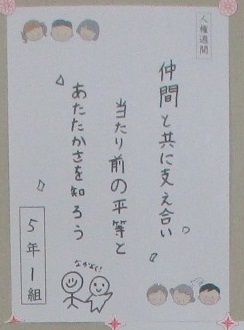 人権週間
仲間と共に支え合い
当たり前の平等と
あたたかさを知ろう
5年1組
なかよく!